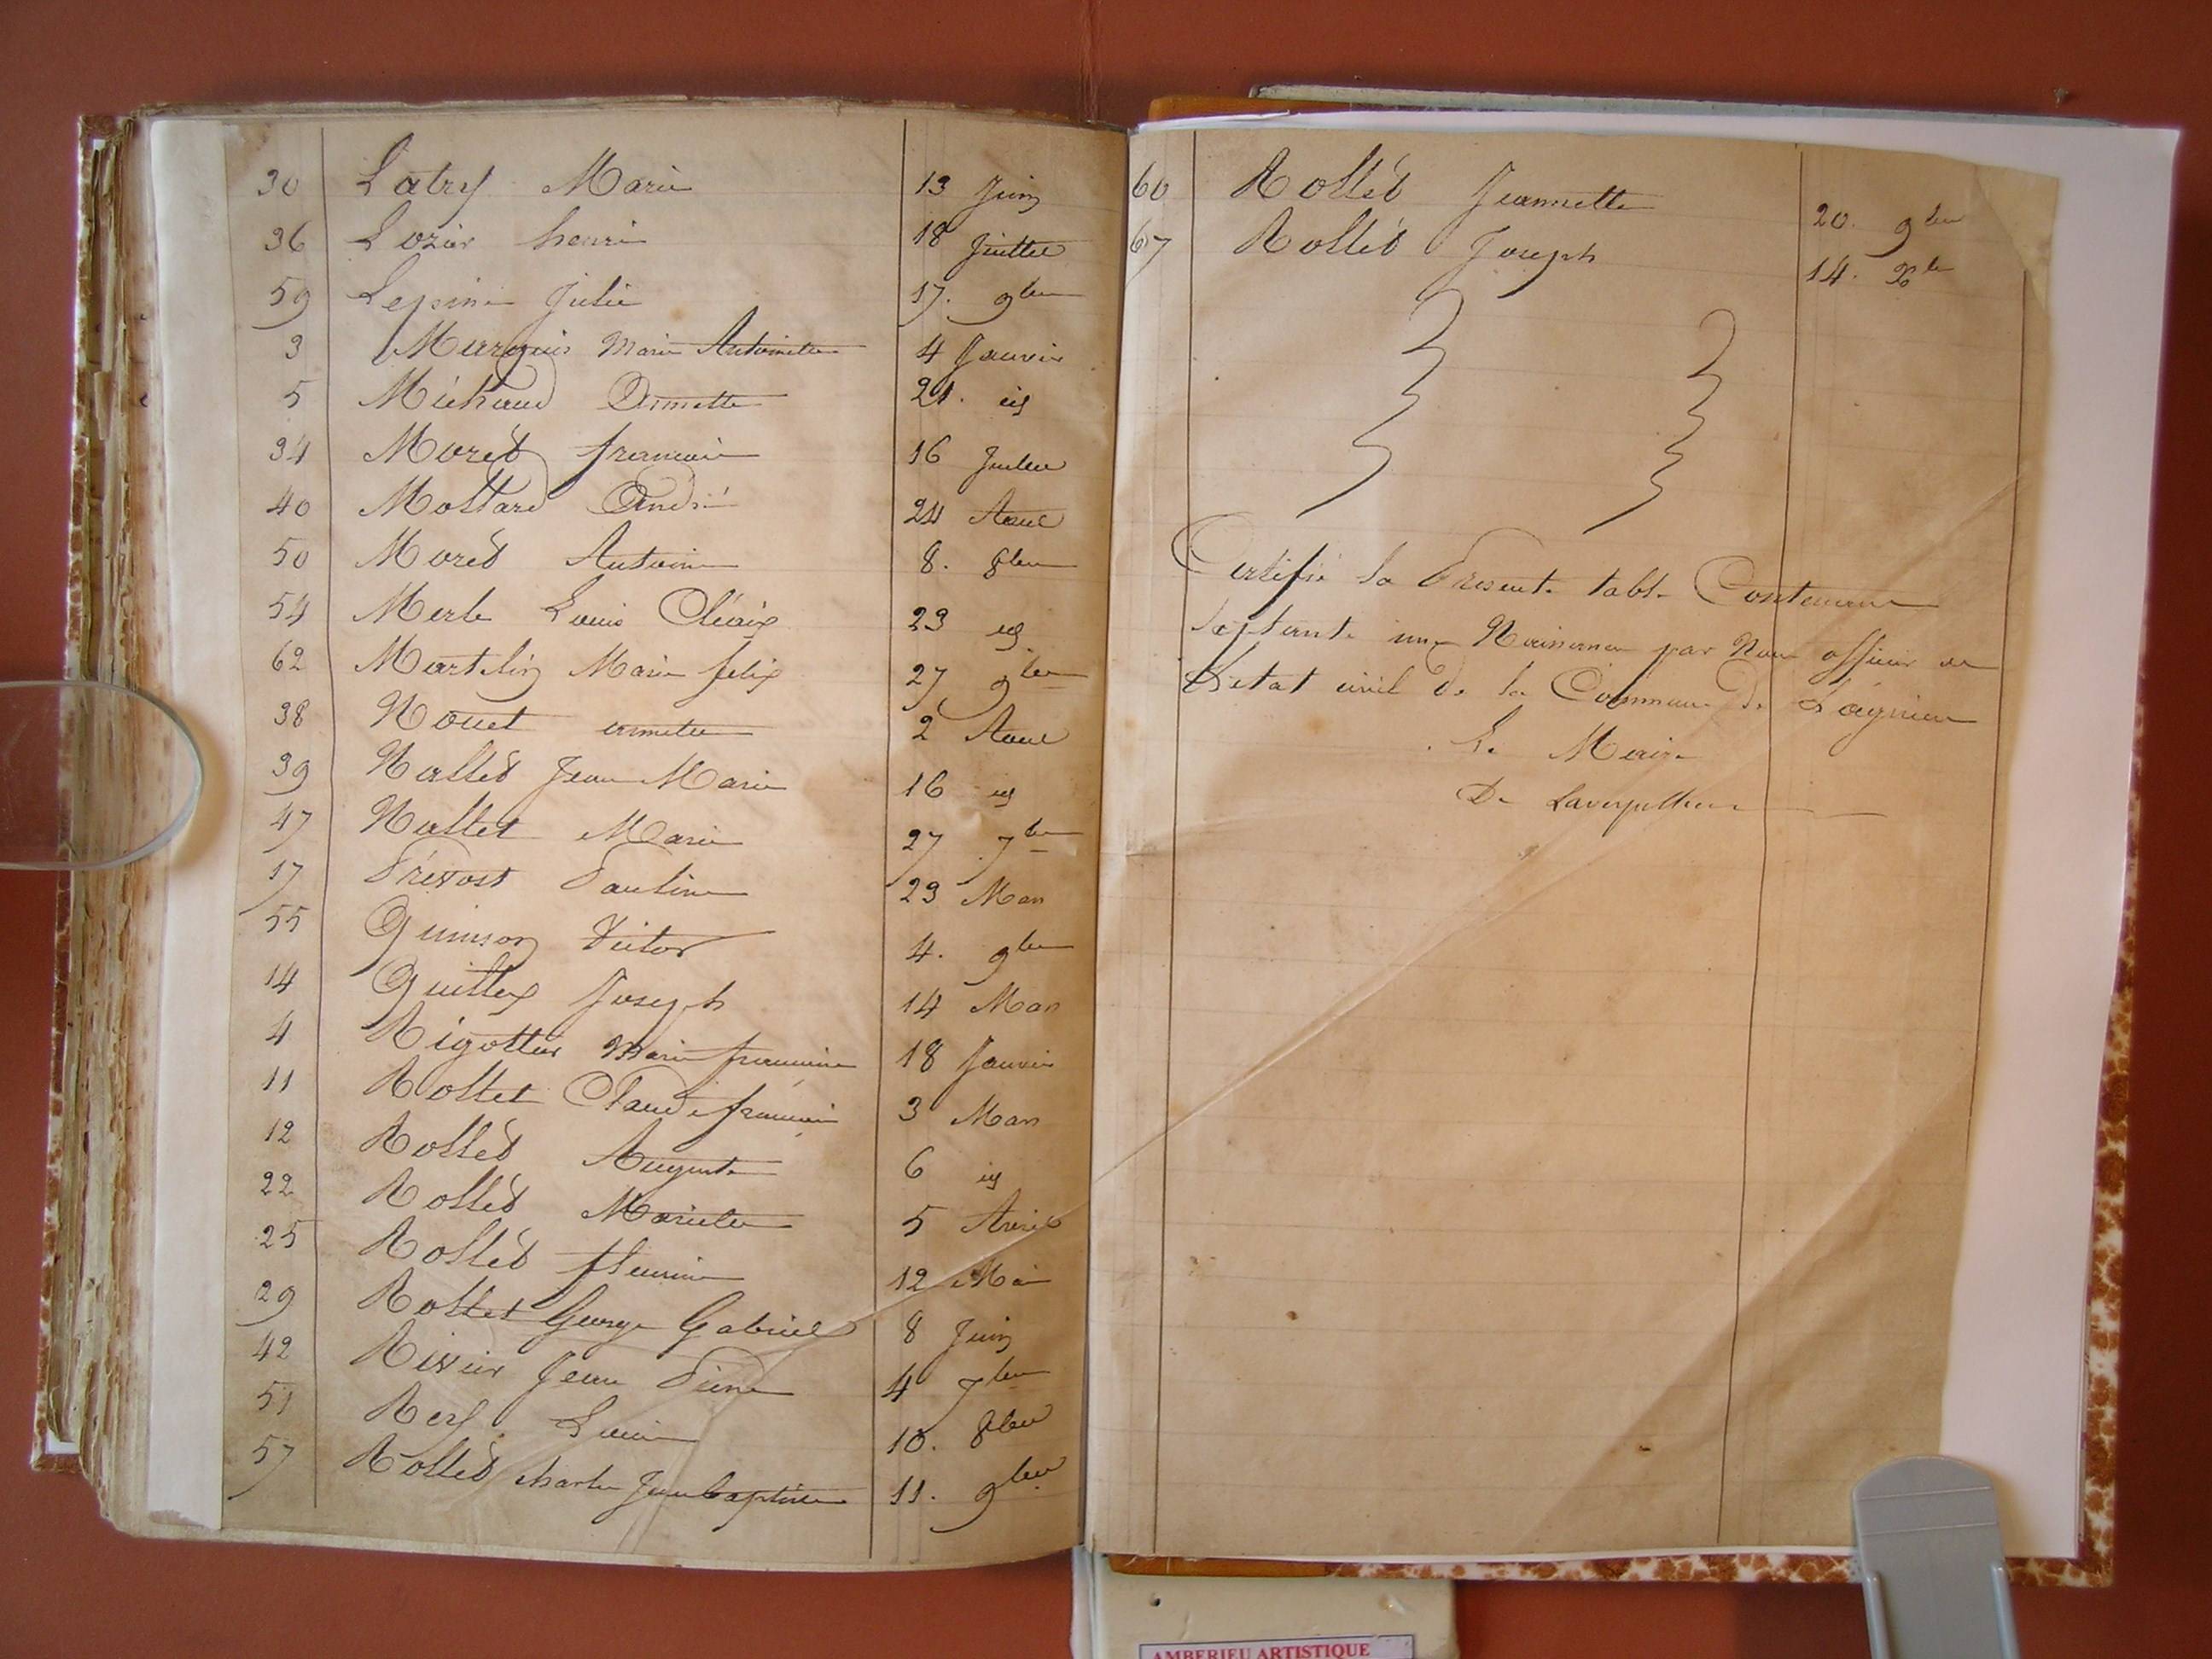 30 Latry Marie 13 Juin
36 Lozier henri 18 Juillet
59 Lepine Julie 17. 9bre
3 Marquis Marie Antoinette 4 Janvier
5 Michaud Annette 21. id
34 Moret francois 16 Juillet
40 Mollard André 24 Aout
50 Moret Antoine 8. 8bre
54 Merle Louis 23 id
62 Martelin Marie felix 27 9bre
38 Nouet annette 2 Aout
39 Nallet Jean Marie 16 id
47 Nallet Marie 27 7bre
17 Prévost Pauline 23 Mars
55 Quinson Victor 4. 9bre
14 Joseph 14 Mars
4 Rigottier Marie francoise 18 Janvier
11 Rollet Claude francois 3 Mars
12 Rollet Auguste 6 id
22 Rollet Mariette 5 Avril
25 Rollet fleurine 12 Mai
29 Rollet George Gabriel 8 Juin
42 Rivier Jean Pierre 4 7bre
51 Rey Louis 10. 8bre
57 Rollet charle Jean baptiste 11. 9bre
60 Rollet Jeannette 20. 9bre
67 Rollet Joseph 14. Xbre
Certifié la Presente table Contenant
Septante une Naissance par Nous officier de
L'etat civil de la Commune de Lagnieu
Le Maire
De Laverpilliere
AMBERIEU ARTISTIQUE